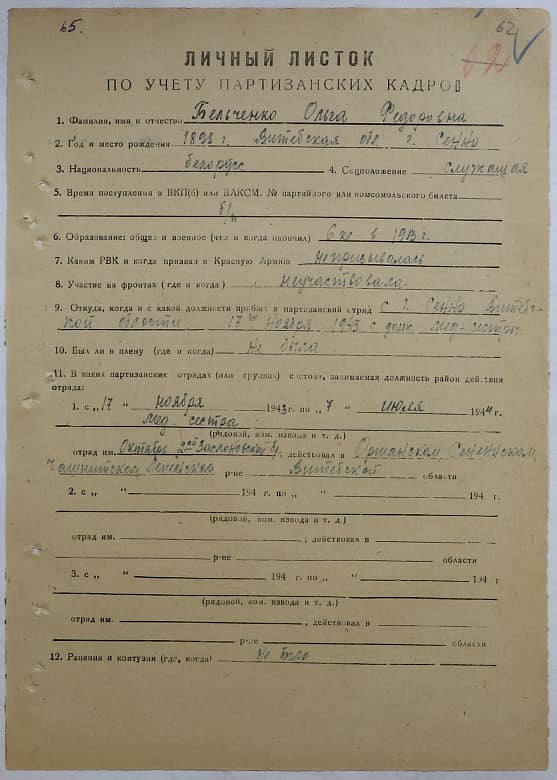 65.
62
ЛИЧНЫЙ ЛИСТОК
ПО УЧЕТУ ПАРТИЗАНСКИХ КАДРОВ
1. Фамилия, имя и отчество Бельченко Ольга Федоровна
2. Год и место рождения 1898 г. Витебская обл. г. Сенно
3. Национальность белорусс 4. Соцположение служащая
5. Время поступления в ВКП(б) или ВЛКСМ. № партийного или комсомольского билета
б/п
6. Образование: общее и военное (что и когда окончил) 6 кл в 1913 г.
7. Каким РВК и когда призван в Красную Армию непризывалась
8. Участие на фронтах (где и когда) неучаствовала
9. Откуда, когда и с какой должности прибыл в партизанский отряд с г. Сенно Витеб-
ской области. 17го ноября 1943 с долж. мед-сестры
10. Был ли в плену (где и когда) не была
11. В каких партизанских отрядах (или группах) состоял, занимаемая должность район действия
отряда:
1. с „17 “ ноября 1943г. по „7 “ июля 1944г.
мед. сестра
(рядовой, ком. взвода и т. д.)
отряд им. Октябрь 2ой Заслоновской бр, действовал в Оршанском, Сенненском,
Чашникском Лепельском р-не Витебской области
2. с „ “ 194 г. по „ “ 194 г.
(рядовой, ком. взвода и т. д.)
отряд им. , действовал в
р-не области
3. с „ “ 194 г. по „ “ 194 г
(рядовой, ком. взвода и т. д.)
отряд им. , действовал в
р-не области
12. Ранения и контузии (где, когда) не было